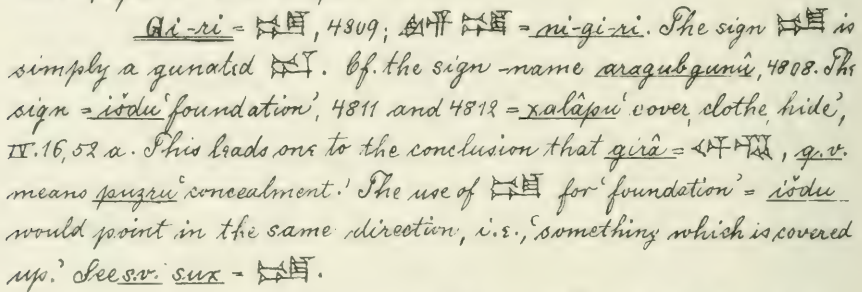 Gi-ri = , 4809; = ni-gi-ri. The sign is
simply a gunated . Cf. the sign-name aragubgunû, 4808. The
sign = išdu 'foundation', 4811 and 4812 = xalâpu 'cover, clothe, hide',
IV. 16, 52 a. This leads one to the conclusion that girâ = , q.v.
means puzru 'concealment.' The use of for 'foundation' = išdu
would point in the same direction, i.e., 'something which is covered
up.' See s.v. sux = .